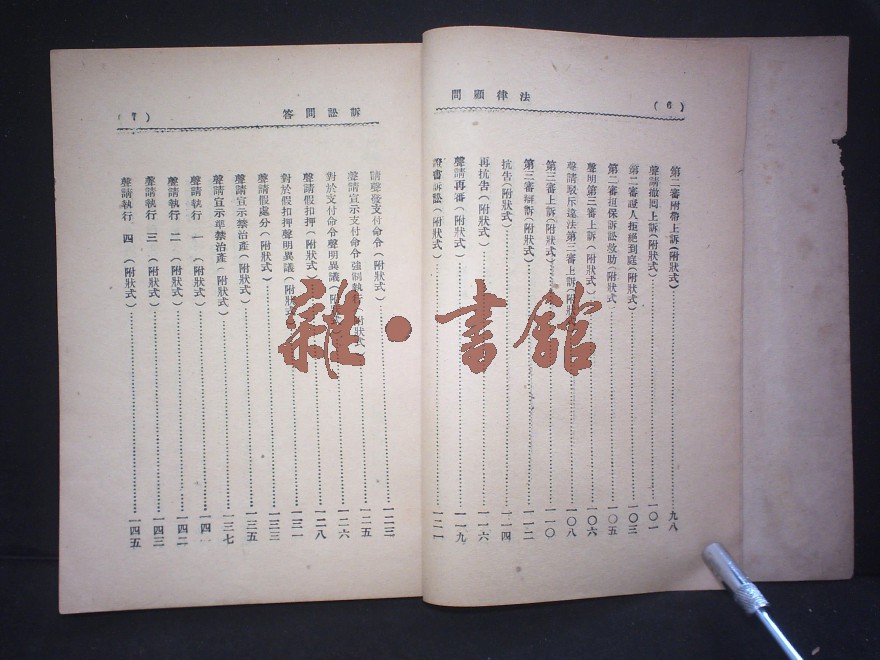 (6)
法律顧問
第二審附帶上訴(附狀式)……九八
聲請撤囘上訴(附狀式)……一〇一
第二審證人拒絕到庭(附狀式)……一〇三
第二審担保訴訟救助(附狀式……一〇五
聲明第三審上訴(附狀式)……一〇六
聲請駁斥違法第三審上訴(附狀……一〇八
第三審上訴(附狀式)……一一〇
第三審辯訴(附狀式)……一一二
抗告(附狀式)……一一四
再抗告(附狀式)……一一六
聲請再審(附狀式)……一一九
證書訴訟(附狀式)……一二一
訴訟問答
(7)
請發支付命令(附狀式)……一二三
聲請宣示支付命令強制執行(附狀式……一二五
對於支付命令聲明異議(附……一二六
聲請假扣押(附狀式)……一二八
對於假扣押聲明異議(附狀式)……一三一
聲請假處分(附狀式)……一三三
聲請宣示禁治產(附狀式)……一三五
聲請宣示準禁治產(附狀式)……一三七
聲請執行 一(附狀式)……一四
聲請執行 二(附狀式)……一四二
聲請執行 三(附狀式)……一四三
聲請執行 四(附狀式)……一四五
雜·書館